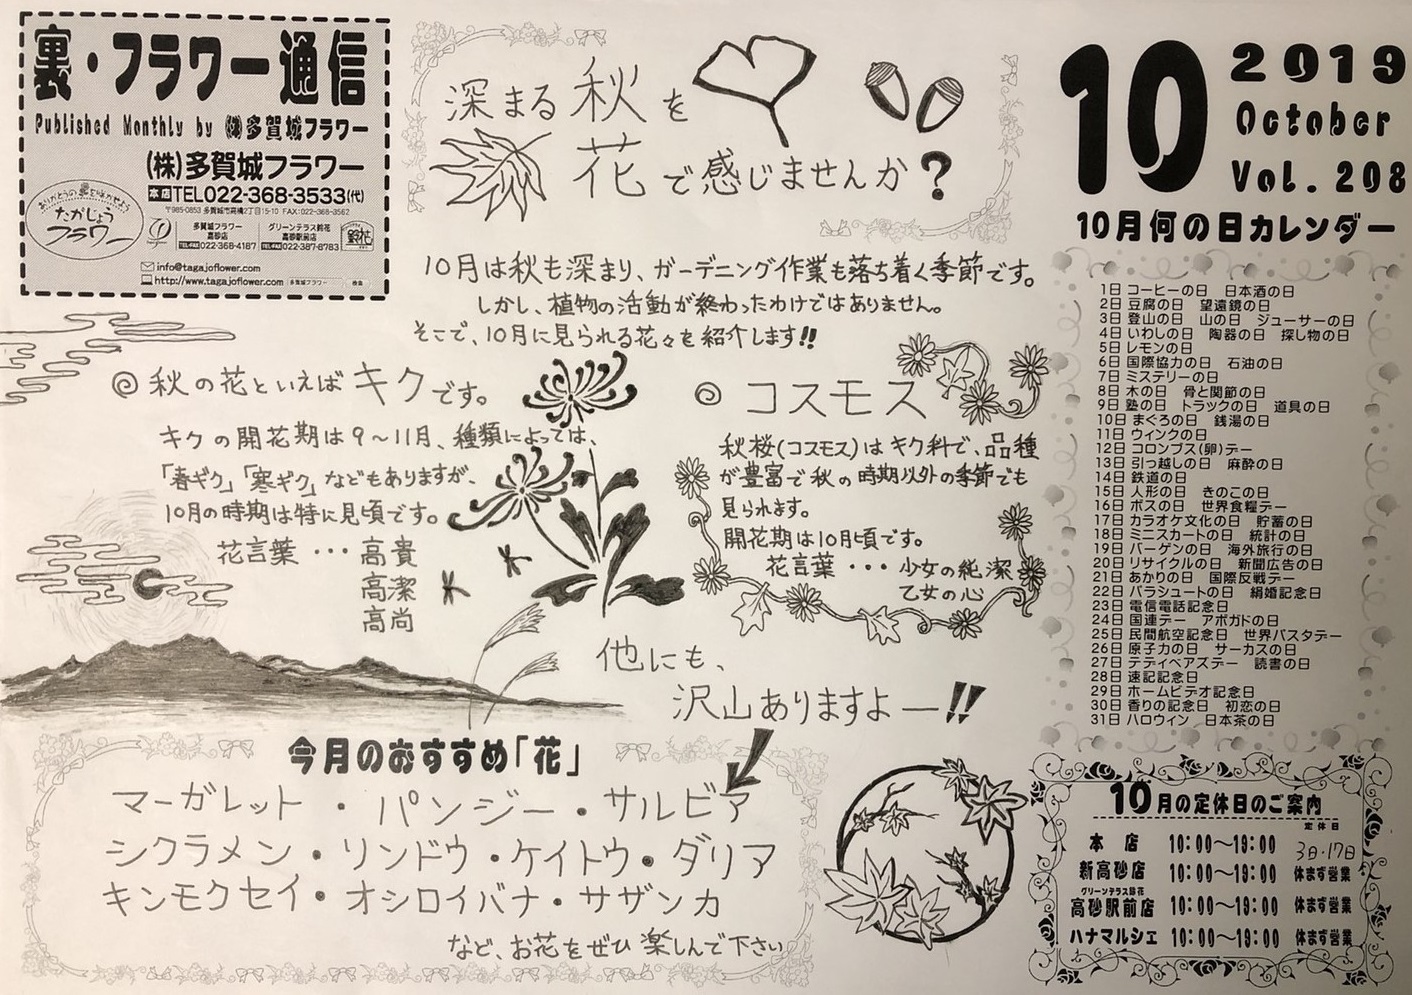 裏・フラワー通信
Published Monthly by ㈱多賀城フラワー
(株)多賀城フラワー
本店TEL022-368-3533(代)
〒985-0853 多賀城市高橋2丁目15-10 FAX:022-368-3562
たがじょう
フラワー
多賀城フラワー
高砂店
TEL・FAX022-368-4187
グリーンテラス鈴花
高砂駅前店
TEL・FAX022-387-8783
鈴花
info@tagajoflower.com
http://www.tagajoflower.com
多賀城フラワー 検索
深まる秋を
花で感じませんか?
10月は秋も深まり、ガーデニング作業も落ち着く季節です。
しかし、植物の活動が終わったわけではありません。
そこで、10月に見られる花々を紹介します!!
◎秋の花といえばキクです。
キクの開花期は9〜11月、種類によっては、
「春ギク」「寒ギク」などもありますが、
10月の時期は特に見頃です。
花言葉・・・高貴
高潔
高尚
◎コスモス
秋桜(コスモス)はキク科で、品種
が豊富で秋の時期以外の季節でも
見られます。
開花期は10月頃です。
花言葉・・・少女の純潔
乙女の心
他にも、
沢山ありますよー!!
今月のおすすめ「花」
マーガレット・パンジー・サルビア
シクラメン・リンドウ・ケイトウ・ダリア
キンモクセイ・オシロイバナ・サザンカ
など、お花をぜひ楽しんで下さい
10
2019
October
Vol.208
10月何の日カレンダー
1日 コーヒーの日 日本酒の日
2日 豆腐の日 望遠鏡の日
3日 登山の日 山の日 ジューサーの日
4日 いわしの日 陶器の日 探し物の日
5日 レモンの日
6日 国際協力の日 石油の日
7日 ミステリーの日
8日 木の日 骨と関節の日
9日 塾の日 トラックの日 道具の日
10日 まぐろの日 銭湯の日
11日 ウインクの日
12日 コロンブス(卵)デー
13日 引っ越しの日 麻酔の日
14日 鉄道の日
15日 人形の日 きのこの日
16日 ボスの日 世界食糧デー
17日 カラオケ文化の日 貯蓄の日
18日 ミニスカートの日 統計の日
19日 バーゲンの日 海外旅行の日
20日 リサイクルの日 新聞広告の日
21日 あかりの日 国際反戦デー
22日 パラシュートの日 絹婚記念日
23日 電信電話記念日
24日 国連デー アボガドの日
25日 民間航空記念日 世界パスタデー
26日 原子力の日 サーカスの日
27日 テディベアズデー 読書の日
28日 速記記念日
29日 ホームビデオ記念日
30日 香りの記念日 初恋の日
31日 ハロウィン 日本茶の日
10月の定休日のご案内
定休日
本店 10:00〜19:00 3日・17日
新高砂店 10:00〜19:00 休まず営業
グリーンテラス鈴花
高砂駅前店 10:00〜19:00 休まず営業
ハナマルシェ 10:00〜19:00 休まず営業